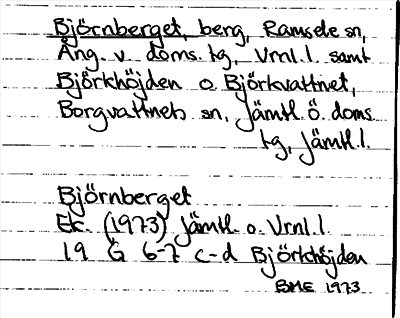 Björnberget, berg, Ramsele sn,
Ång. v. doms. tg, Vrnl. l. samt
Björkhöjden o Björkvattnet,
Borgvattnets sn, Jämtl. ö. doms
tg, Jämtl. l.
Björnberget
Ek. (1973) Jämtl. o. Vrnl. l.
19 G 6-7 c-d Björkhöjden
BME 1973